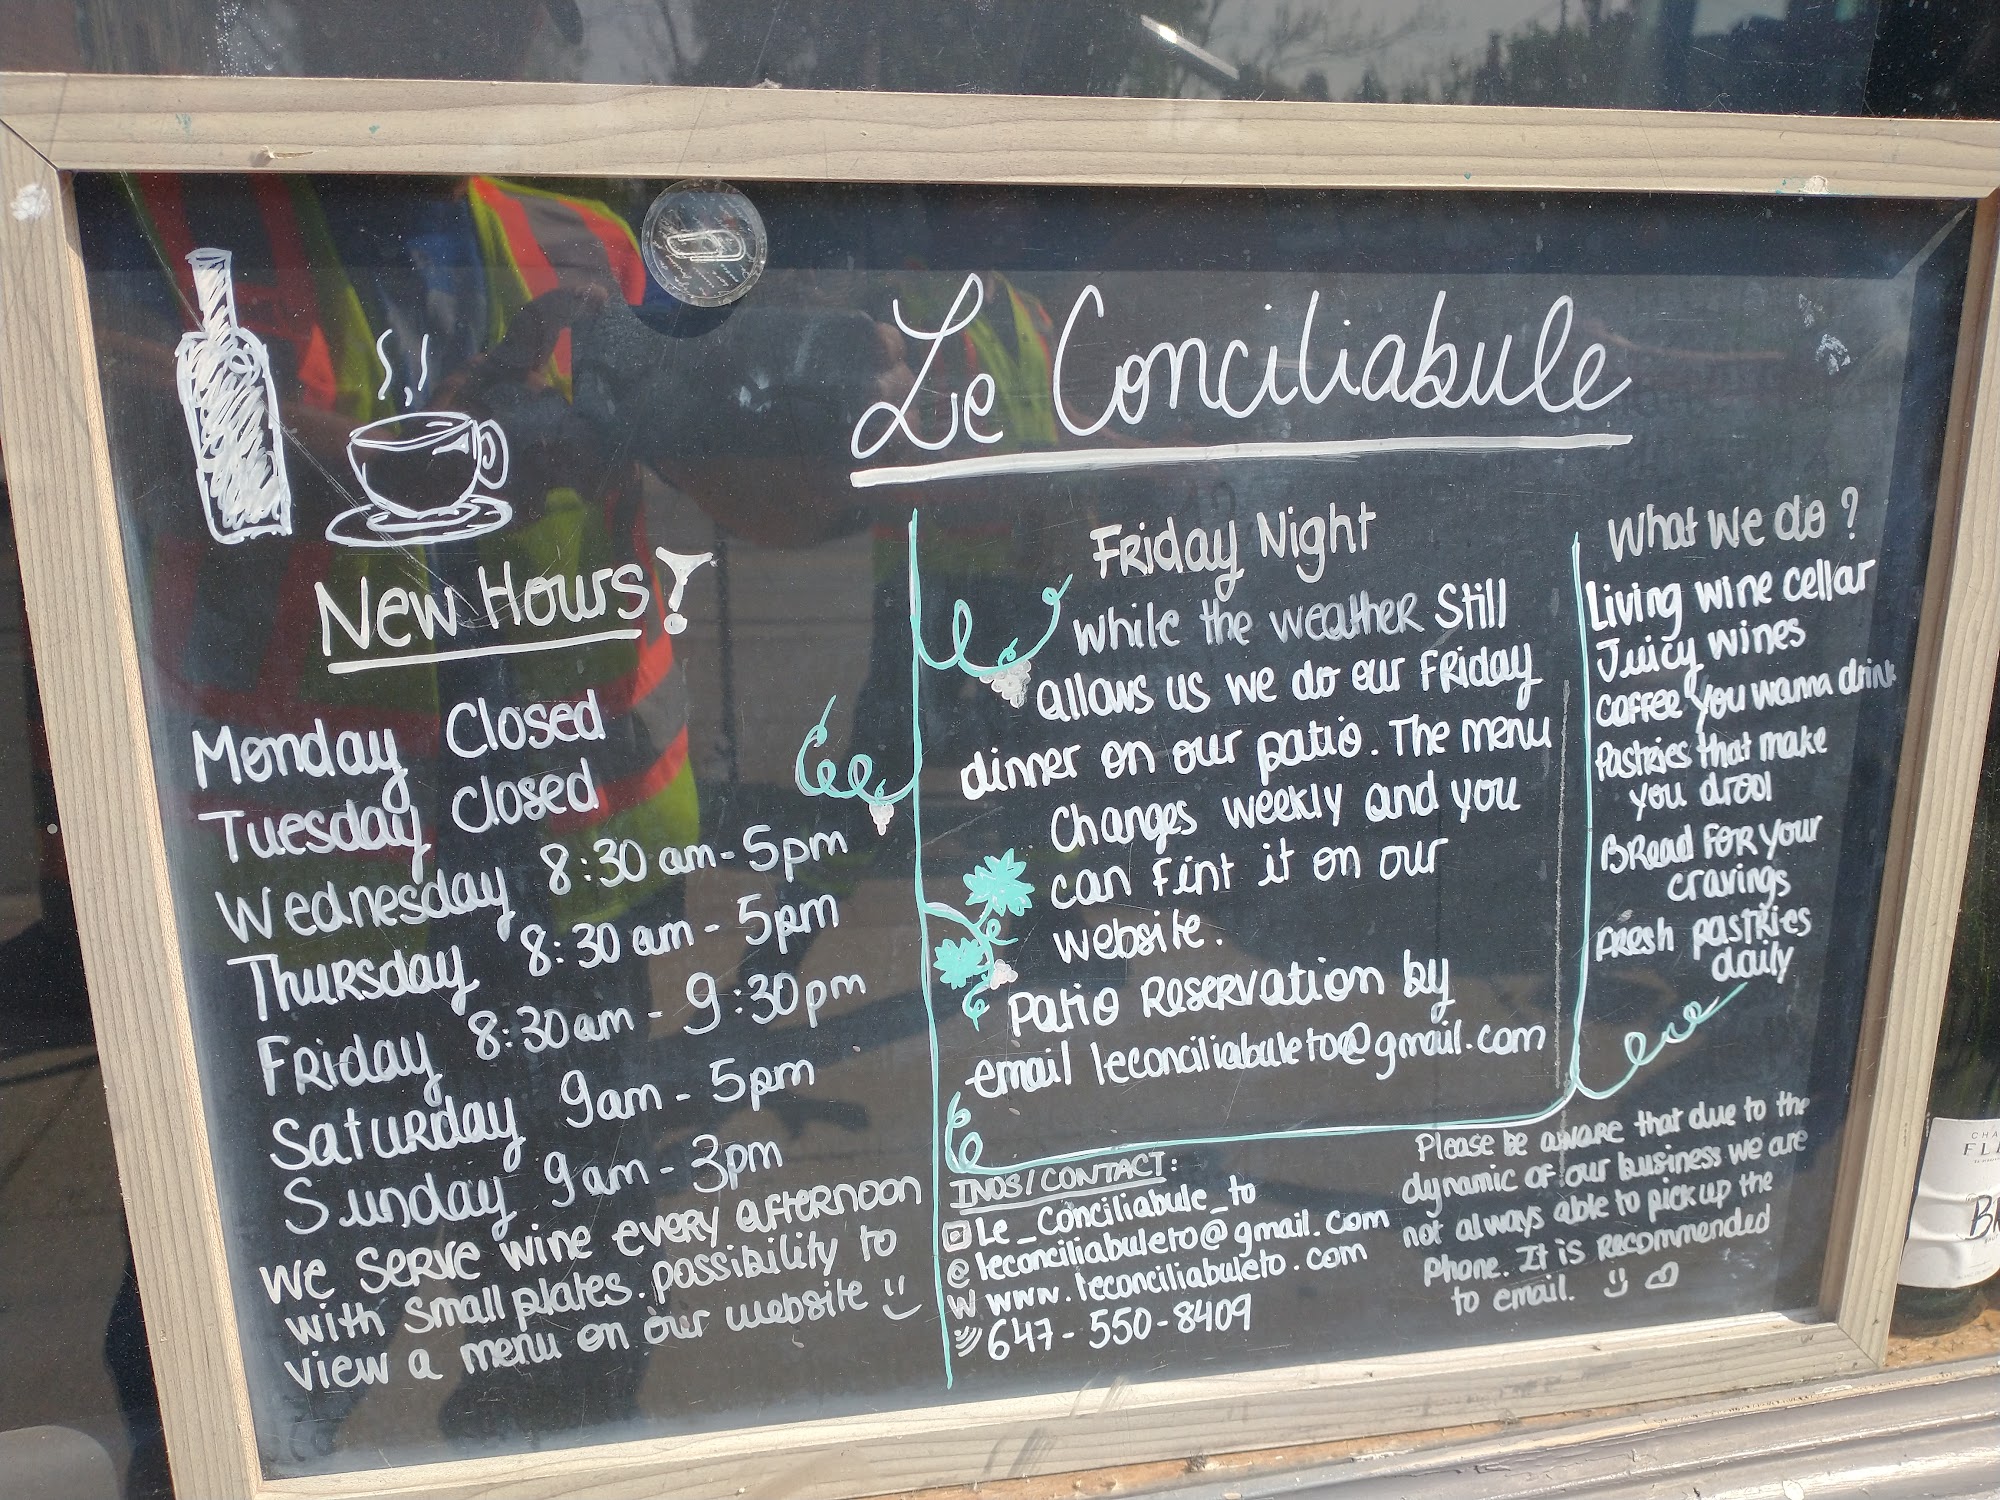 Le Conciliabule
New Hours!
Monday Closed
Tuesday Closed
Wednesday 8:30 am - 5pm
Thursday 8:30 am - 5pm
Friday 8:30am - 9:30pm
Saturday 9am - 5pm
Sunday 9am - 3pm
We serve wine every afternoon
with small plates. possibility to
view a menu on our website
Friday Night
While the weather still
allows us we do our Friday
dinner on our patio. The menu
Changes weekly and you
can Fint it on our
website.
Patio Reservation by
email leconciliabuleto@gmail.com
What we do?
Living wine cellar
Juicy wines
Coffee you wanna drink
Pastries that make
you drool
Bread For your
cravings
Fresh pastries
daily
INOS/CONTACT:
Le_Conciliabule_to
@ leconciliabuleto@gmail.com
W www.leconciliabuleto.com
647-550-8409
Please be aware that due to the
dynamic of our business we are
not always able to pick up the
phone. It is recommended
to email.